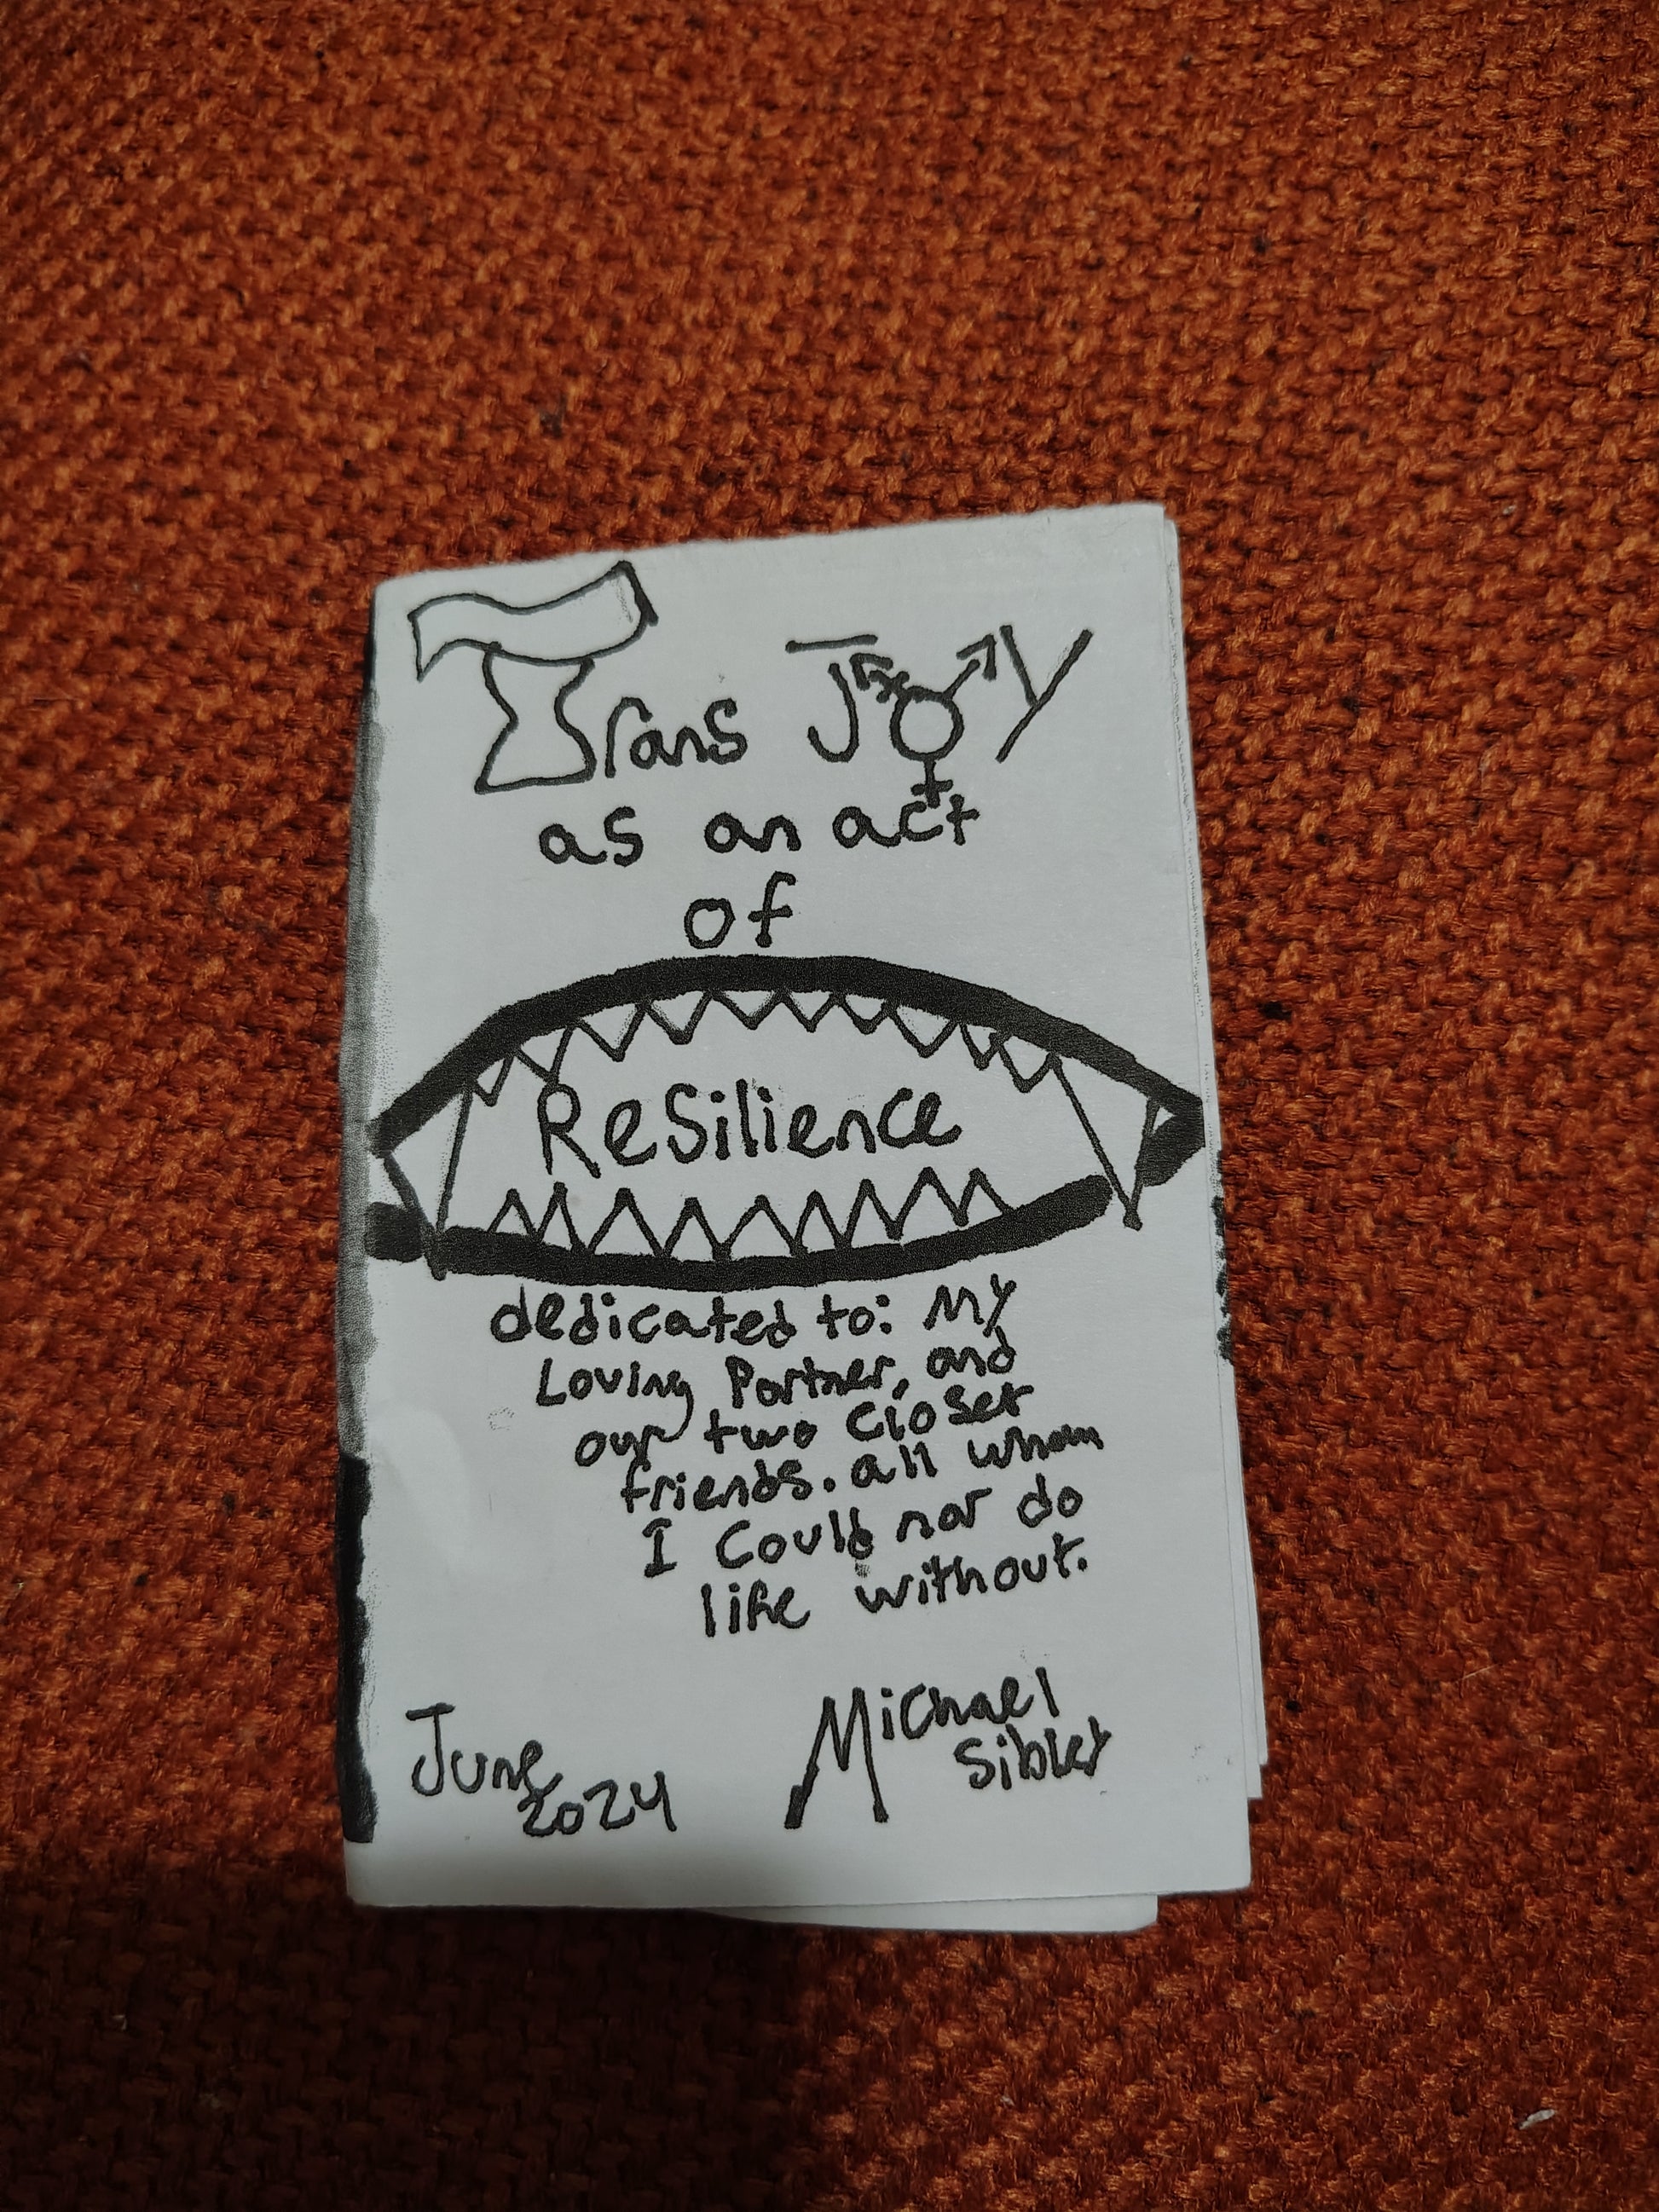 Trans JOY
as an act
of
ReSilience
dedicated to: My
Loving Partner, and
our two Closet
friends. all whom
I Could not do
life without.
June
2024
Michael
Sibley